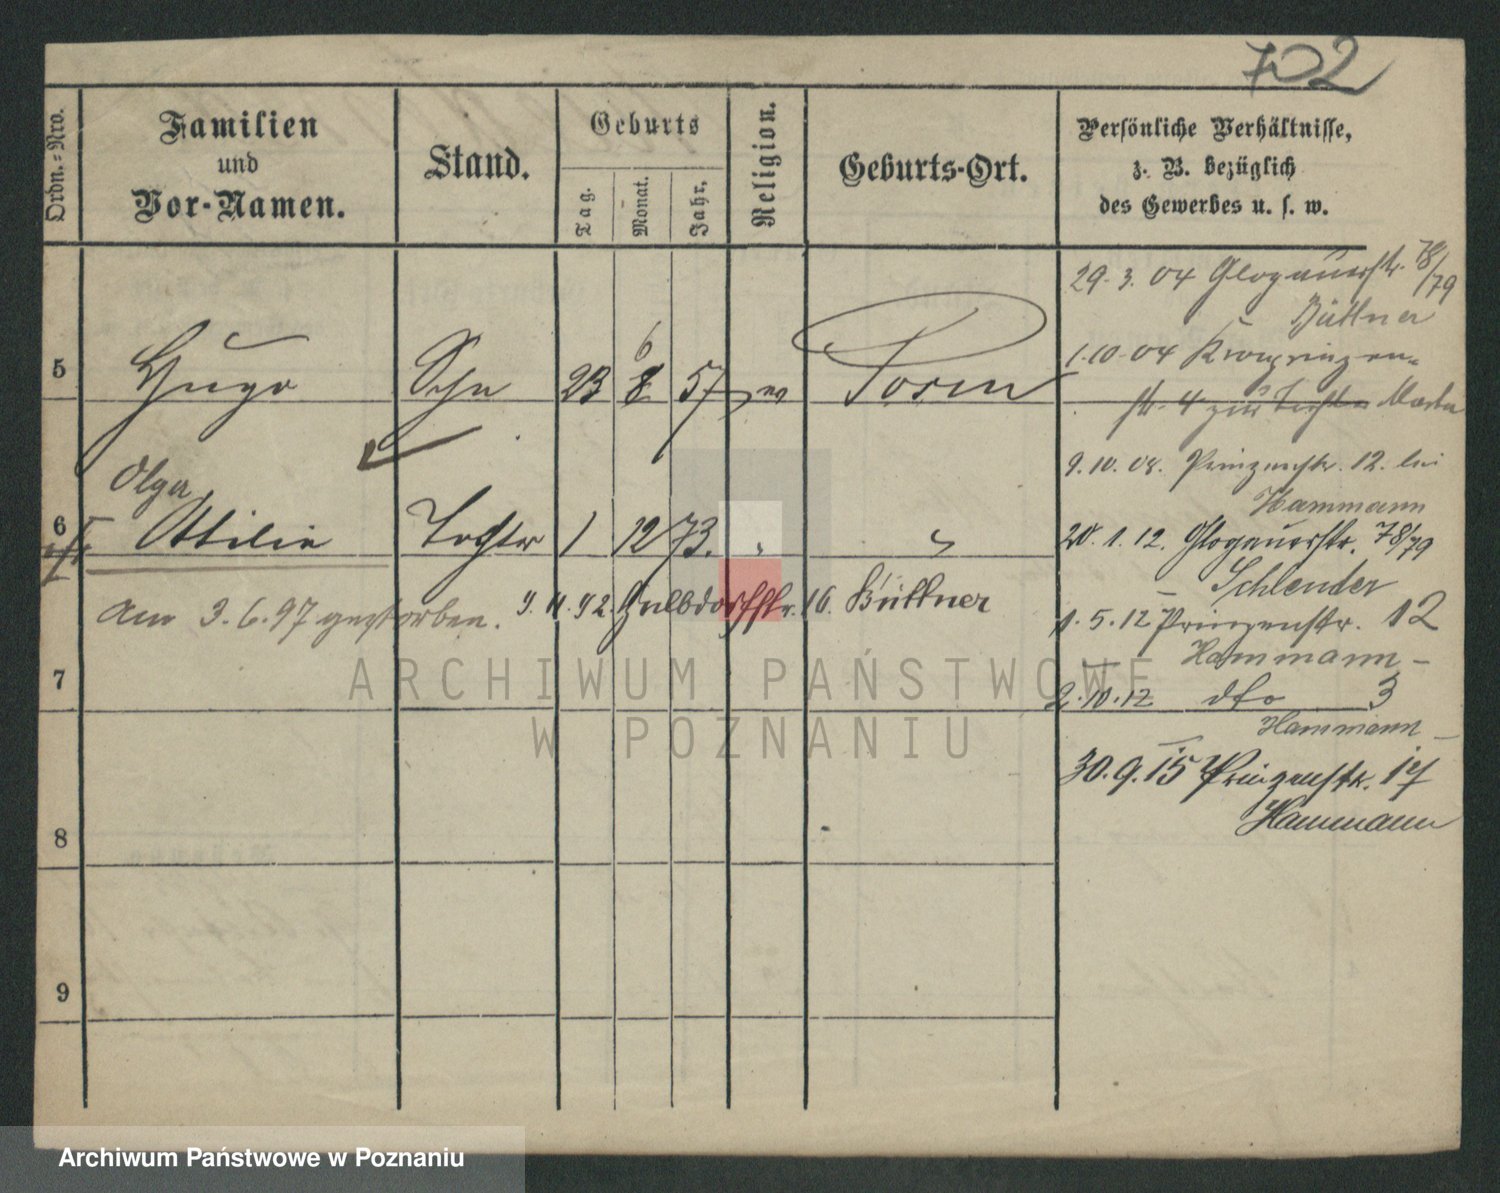 702
Ordn.-Nro.
Familien
und
Vor-Namen.
Stand.
Geburts
Tag.
Monat.
Jahr.
Religion.
Geburts-Ort.
Persönliche Verhältnisse,
z. B. bezüglich
des Gewerbes u. s. w.
29. 3. 04 Glogauerstr. 78/79
Büttner
5 Hugo Sohn 23 6 8 57 ev Posen
1.10.04 Kronprinzen-
str. 4 zur Tochter
9. 10. 08. Prinzenstr. 12. bei
Hammann
Olga
6 Ottilie Tochter 1 12 73. "
20. 1. 12. Glogauerstr. 78/79
Schlender
am 3. 6. 97 gestorben.
16. Büttner
1. 5. 12 Prinzenstr. 12
Hammann -
7
2.10.12 dto 3
Hammann -
30. 9. 15 Prinzenstr. 17
Hammann
8
9
ARCHIWUM PAŃSTWOWE
W POZNANIU
Archiwum Państwowe w Poznaniu